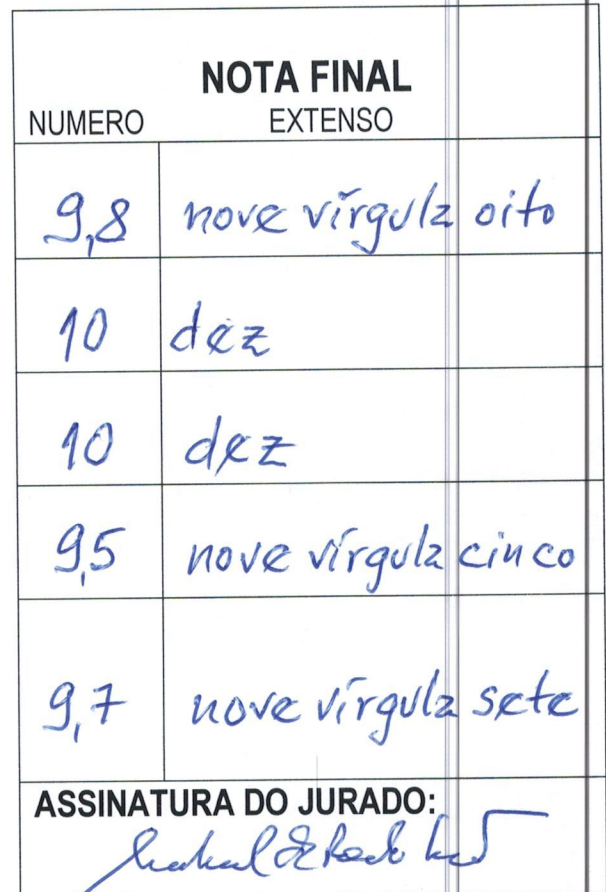 NOTA FINAL
NUMERO EXTENSO
9,8 nove vírgula oito
10 dez
10 dez
9,5 nove vírgula cinco
9,7 nove vírgula sete
ASSINATURA DO JURADO: